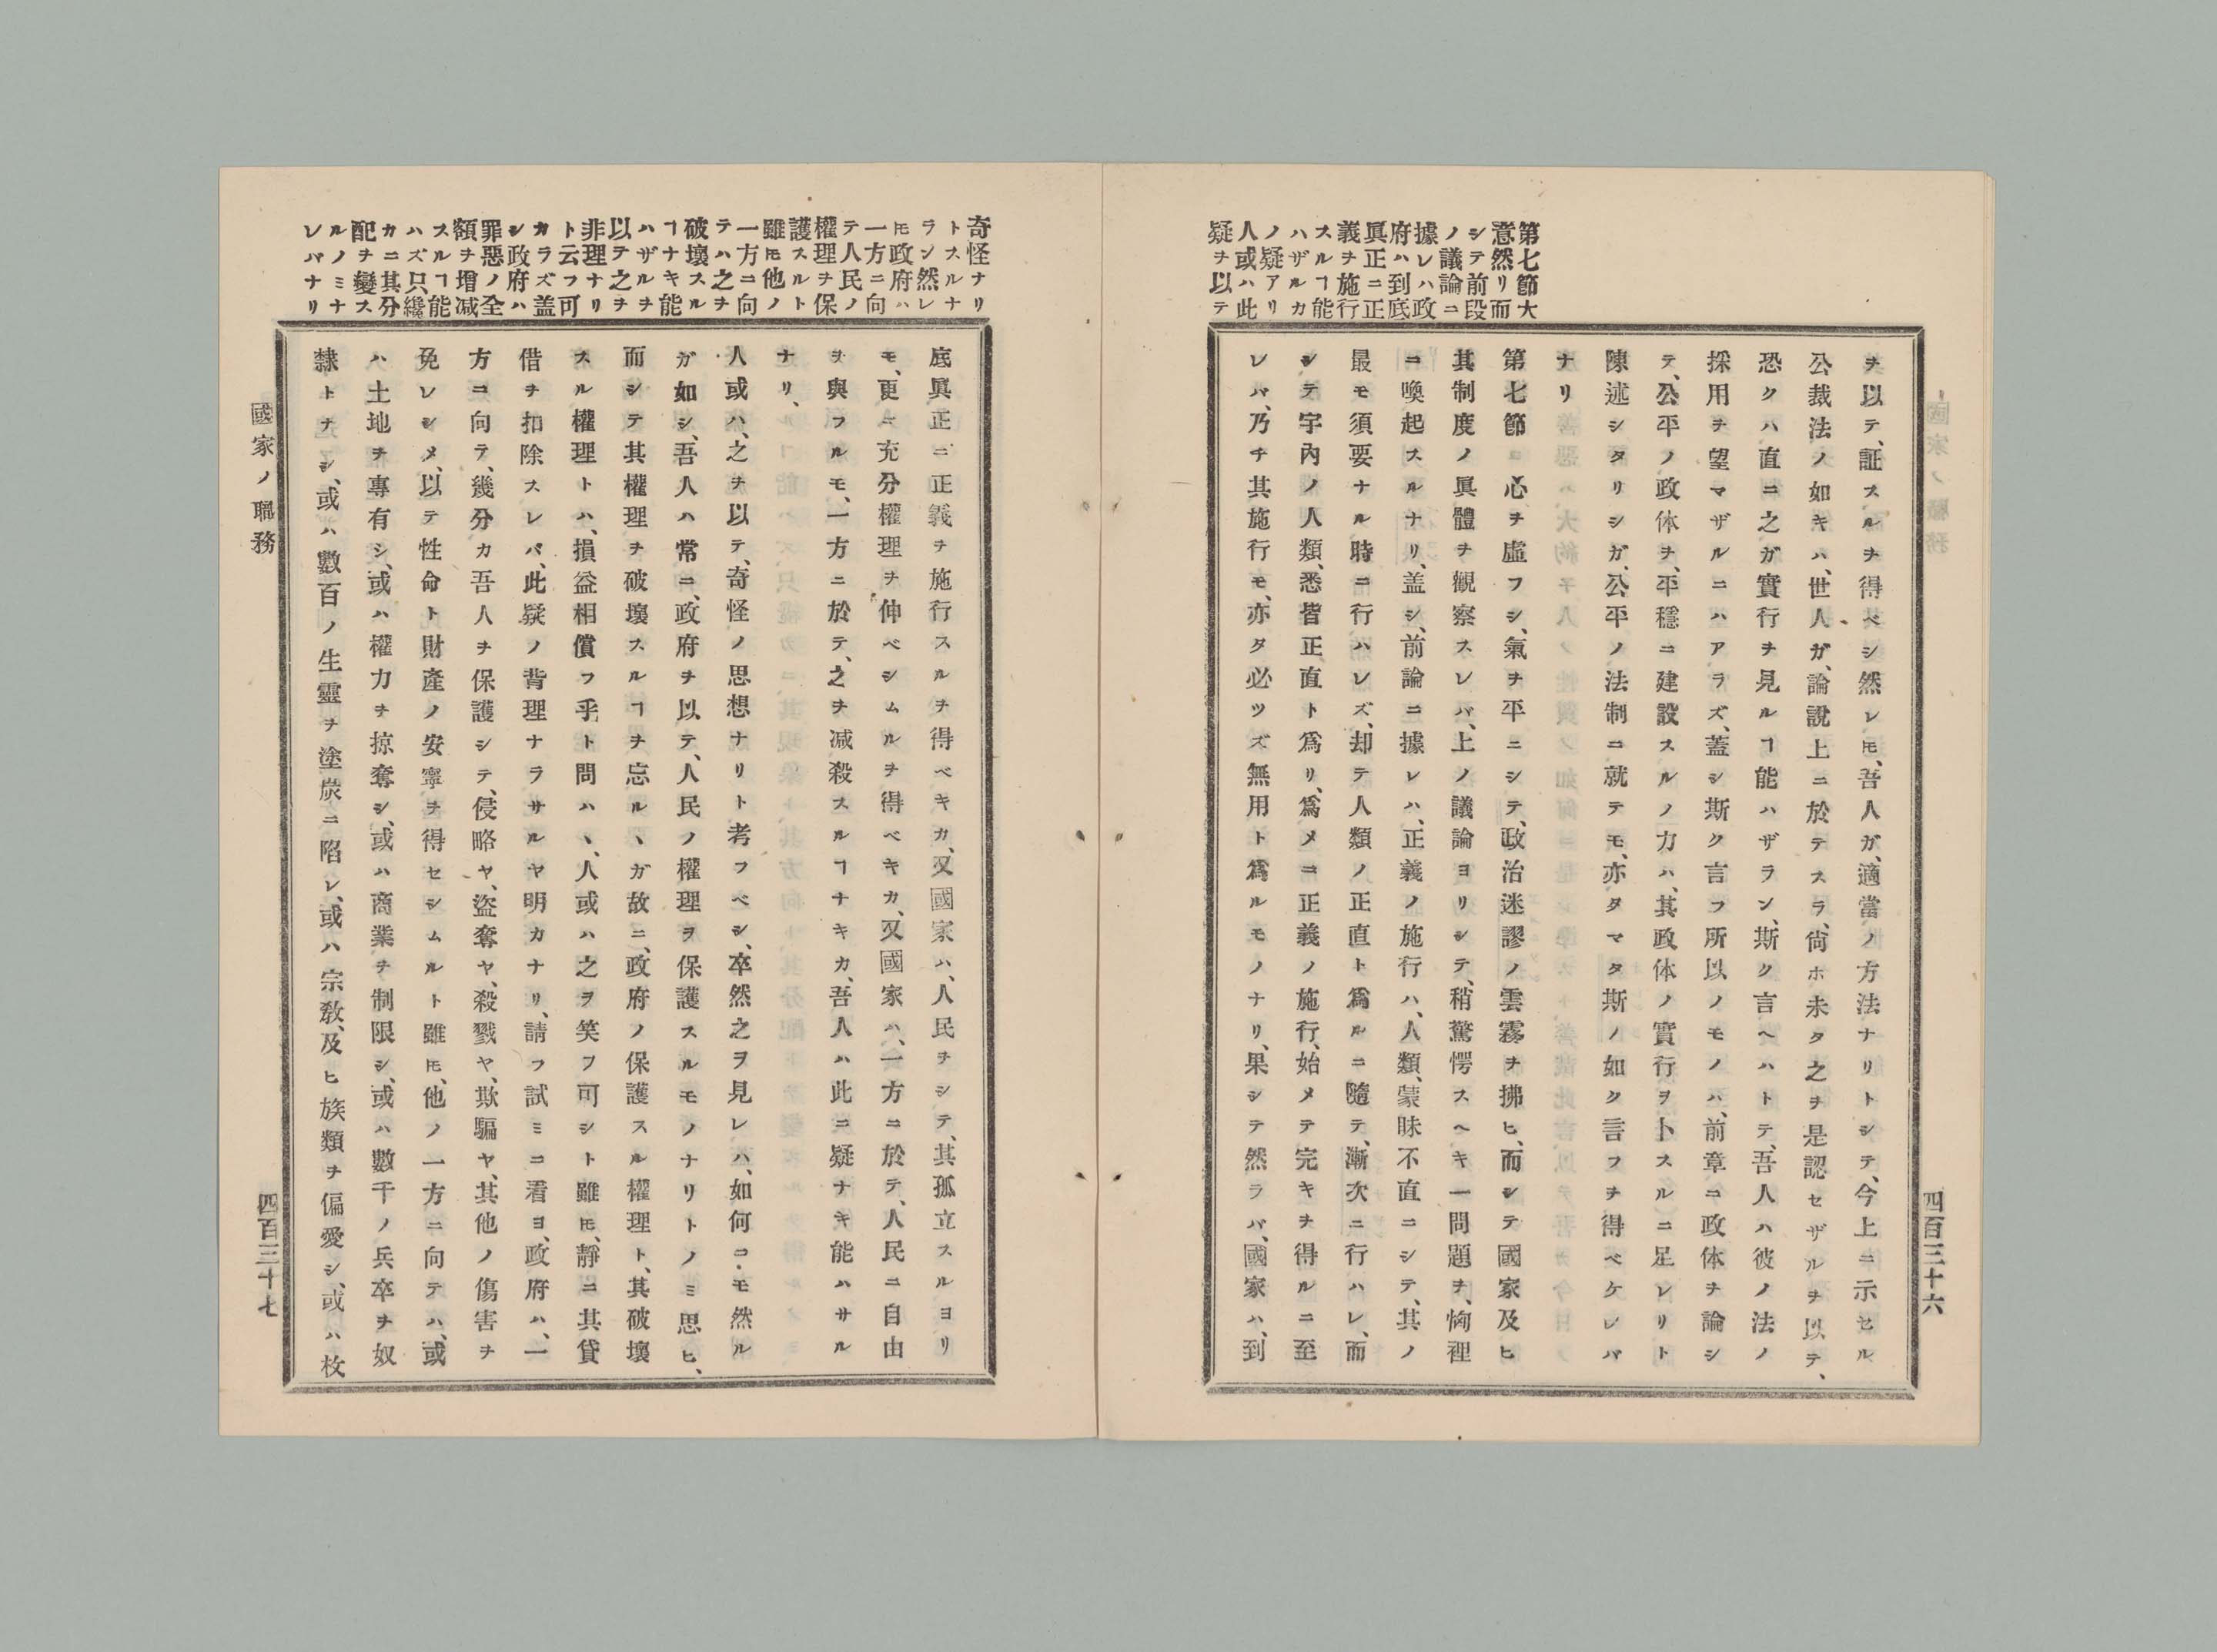 第七節大
意然リ而
シテ前段
ノ議論ニ
據レハ政
府ハ到底
眞正ニ正
義ヲ施行
スルヿ能
ハザルカ
ノ疑アリ
人或ハ此
疑ヲ以テ
ヲ以テ、証スルヲ得ベシ然レ𪜈、吾人ガ、適當ノ方法ナリトシテ、今上ニ示セル
公裁法ノ如キハ、世人ガ、論說上ニ於テスラ、尙ホ未タ之ヲ是認セザルヲ以テ、
恐クハ直ニ之ガ實行ヲ見ルヿ能ハザラン、斯ク言ヘハトテ、吾人ハ彼ノ法ノ
採用ヲ望マザルニハアラズ、蓋シ斯ク言フ所以ノモノハ、前章ニ政体ヲ論シ
テ、公平ノ政体ヲ、平穩ニ建設スルノ力ハ、其政体ノ實行ヲトスルニ足レリト
陳述シタリシガ、公平ノ法制ニ就テモ、亦タマタ斯ノ如ク言フヲ得ベケレバ
ナリ
第七節 心ヲ虛フシ、氣ヲ平ニシテ、政治迷謬ノ雲霧ヲ拂ヒ、而シテ國家及ヒ
其制度ノ眞體ヲ觀察スレバ、上ノ議論ヨリシテ、稍驚愕スヘキ一問題ヲ、恟裡
ニ喚起スルナリ、盖シ、前論ニ據レハ、正義ノ施行ハ、人類、蒙昧不直ニシテ、其ノ
最モ須要ナル時ニ行ハレズ、却テ人類ノ正直ト爲ルニ隨テ、漸次ニ行ハレ、而
シテ宇內ノ人類、悉皆正直ト爲リ、爲メニ正義ノ施行、始メテ完キヲ得ルニ至
レバ、乃チ其施行モ、亦タ必ツズ無用ト爲ルモノナリ、果シテ然ラバ、國家ハ、到
四百三十六
奇怪ナリ
トスルナ
ラン然レ
𪜈政府ハ
一方ニ向
テ人民ノ
權理ヲ保
護スルト
雖𪜈他ノ
一方ニ向
テハ之ヲ
破壞スル
ヿナキ能
ハザルヲ
以テ之ヲ
非理ナリ
ト云フ可
カラズ盖
シ政府ハ
罪惡ノ全
額ヲ增減
スルヿ能
ハズ只纔
カニ其分
配ヲ變ス
ルノミナ
レバナリ
底眞正ニ正義ヲ施行スルヲ得ベキカ、又國家ハ、人民ヲシテ、其孤立スルヨリ
モ、更ニ充分權理ヲ伸ベシムルヲ得ベキカ、又國家ハ、一方ニ於テ、人民ニ自由
ヲ與フルモ、一方ニ於テ、之ヲ減殺スルヿナキカ、吾人ハ此ニ疑ナキ能ハサル
ナリ、
人或ハ、之ヲ以テ、奇怪ノ思想ナリト考フベシ、卒然之ヲ見レハ、如何ニモ然ル
ガ如シ、吾人ハ常ニ、政府ヲ以テ、人民ノ權理ヲ保護スルモノナリトノミ思ヒ、
而シテ其權理ヲ破壞スルヿヲ忘ルヽガ故ニ、政府ノ保護スル權理ト、其破壞
スル權理トハ、損益相償フ乎ト問ハヽ、人或ハ之ヲ笑フ可シト雖𪜈、靜ニ其貸
借ヲ扣除スレバ、此疑ノ背理ナラサルヤ明カナリ、請フ試ミニ看ヨ、政府ハ、一
方ニ向テ、幾分カ吾人ヲ保護シテ、侵略ヤ、盜奪ヤ、殺戮ヤ、欺騙ヤ、其他ノ傷害ヲ
免レシメ、以テ性命ト財產ノ安寧ヲ得セシムルト雖𪜈、他ノ一方ニ向テハ、或
ハ土地ヲ專有シ、或ハ權力ヲ掠奪シ、或ハ商業ヲ制限シ、或ハ數千ノ兵卒ヲ奴
隸トナシ、或ハ數百ノ生靈ヲ塗炭ニ陷レ、或ハ宗敎、及ヒ族類ヲ偏愛シ、或ハ枚
國家ノ職務
四百三十七